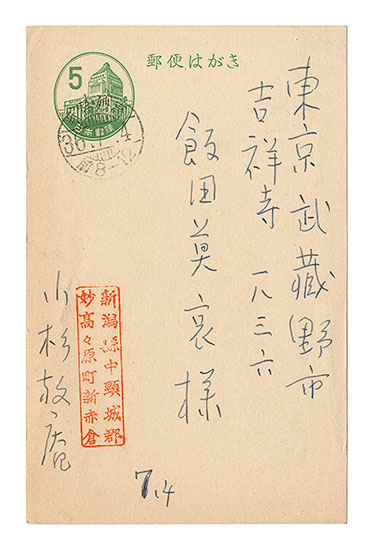 郵便はがき
5
日本郵便
36.7.4
東京武蔵野市
吉祥寺一八三六
飯田莫哀様
新潟縣中頸城郡
妙高々原町新赤倉
小杉放庵
7.4